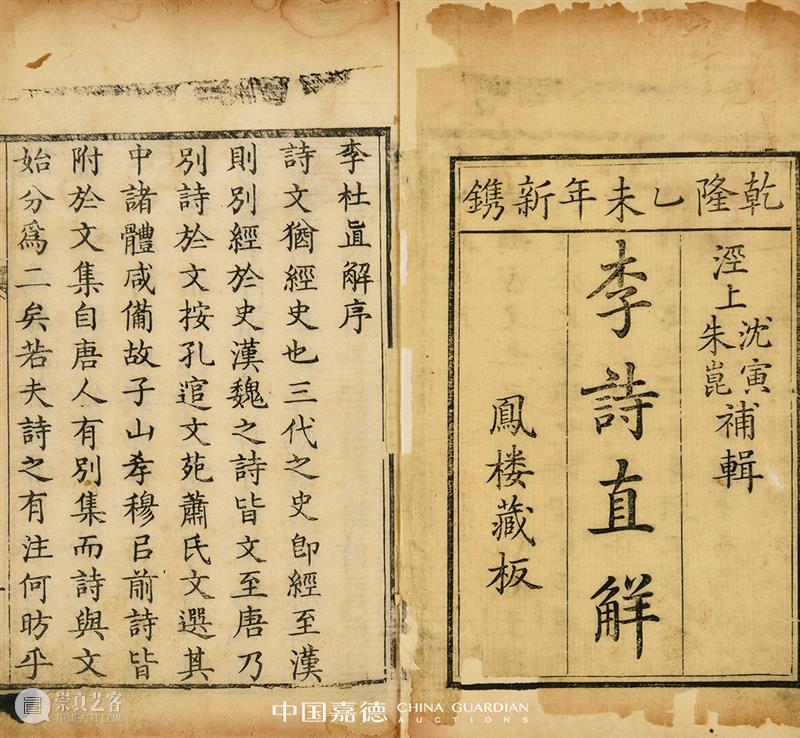 乾隆乙未年新鐫
涇上沈寅朱崑補輯
李詩直解
鳳楼藏板
李杜直解序
詩文猶經史也三代之史即經至漢
則別經於史漢魏之詩皆文至唐乃
別詩於文按孔逭文苑蕭氏文選其
中諸體咸備故子山孝穆㠯前詩皆
附於文集自唐人有別集而詩與文
始分爲二矣若夫詩之有注何昉乎
崇真艺客
TRUEART.COM
中国嘉德 CHINA GUARDIAN
AUCTIONS